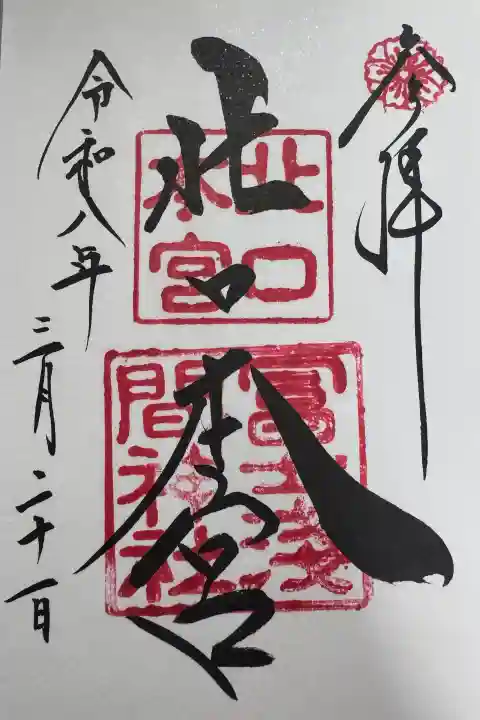 参拝
北口本宮
北口
本宮
冨士浅
間神社
令和八年
三月二十一日